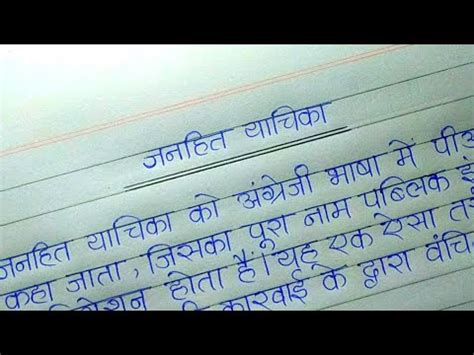 जनहित याचिका
जनहित याचिका को अंग्रेजी भाषा में
कहा जाता, जिसका पूरा नाम पब्लिक
होता है। यह एक ऐसा
कारवाई के द्वारा